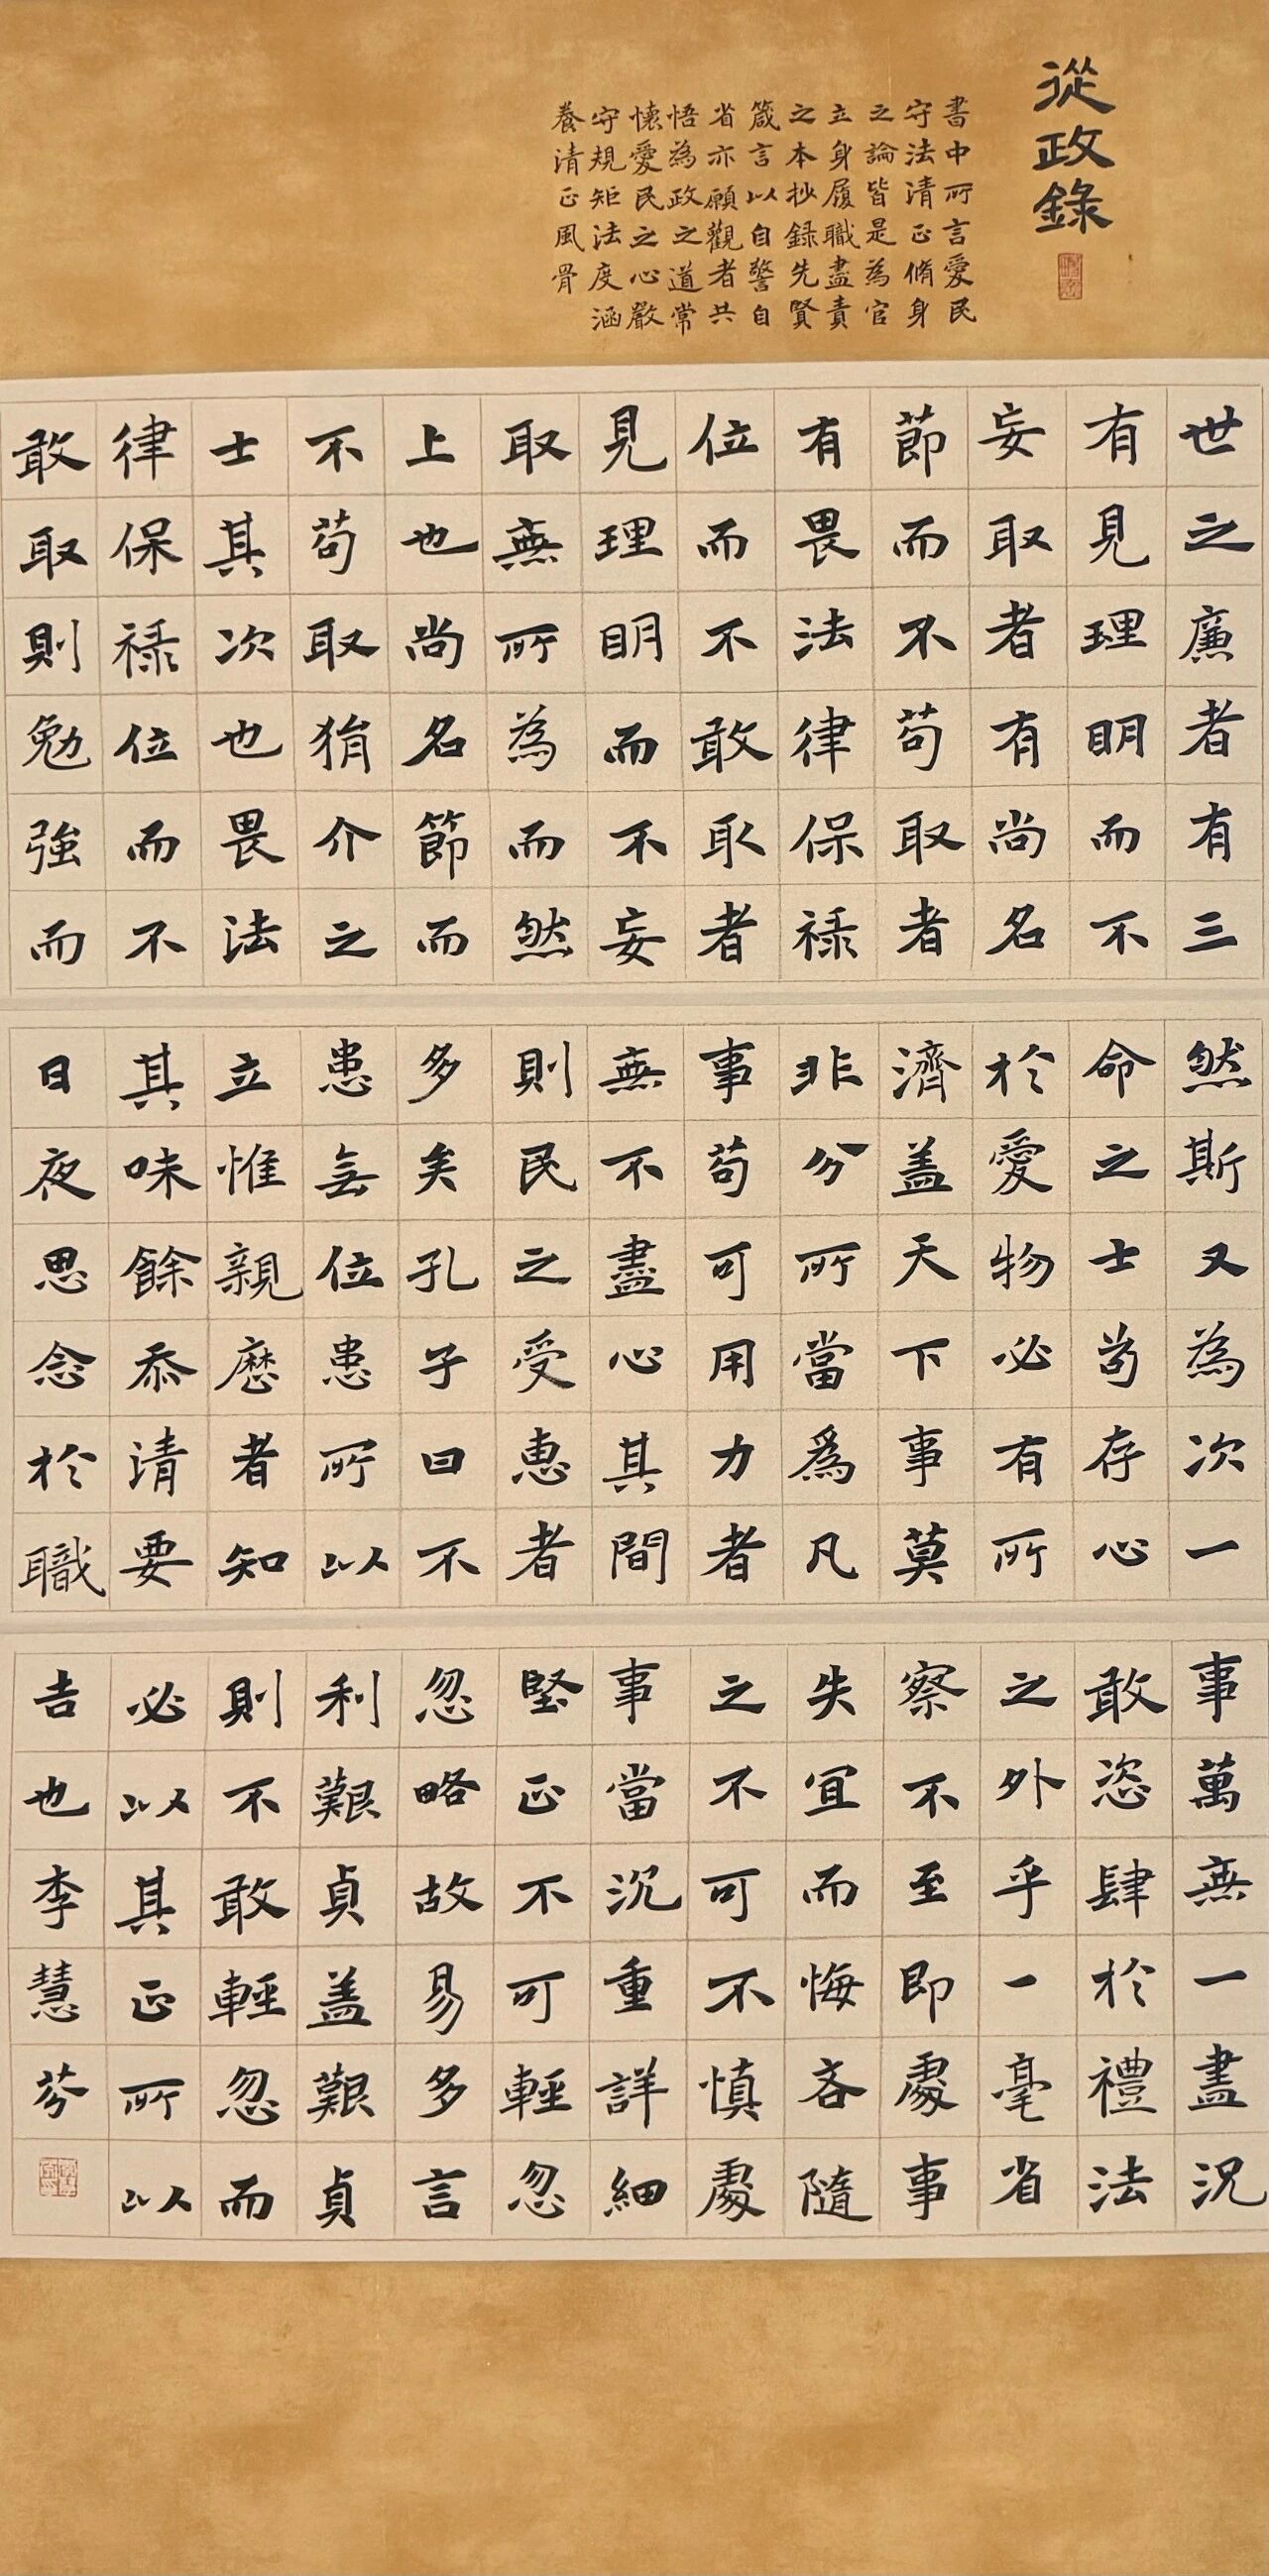 從政錄
書中所言愛民
守法清正脩身
之論皆是為官
立身履職盡責
之本抄錄先賢
箴言以自警自
省亦願觀者共
悟為政之道常
懷愛民之心嚴
守規矩法度涵
養清正風骨
世之廉者有三
有見理明而不
妄取者有尚名
節而不苟取者
有畏法律保祿
位而不敢取者
見理明而不妄
取無所為而然
上也尚名節而
不苟取狷介之
士其次也畏法
律保祿位而不
敢取則勉強而
然斯又為次一
命之士苟存心
於愛物必有所
濟盖天下事莫
非分所當爲凡
事苟可用力者
無不盡心其間
則民之受惠者
多矣孔子曰不
患無位患所以
立惟親歷者知
其味餘忝清要
日夜思念於職
事萬無一盡況
敢恣肆於禮法
之外乎一毫省
察不至即處事
失宜而悔吝隨
之不可不慎處
事當沉重詳細
堅正不可輕忽
忽略故易多言
利艱貞盖艱貞
則不敢輕忽而
必以其正所以
吉也李慧芬